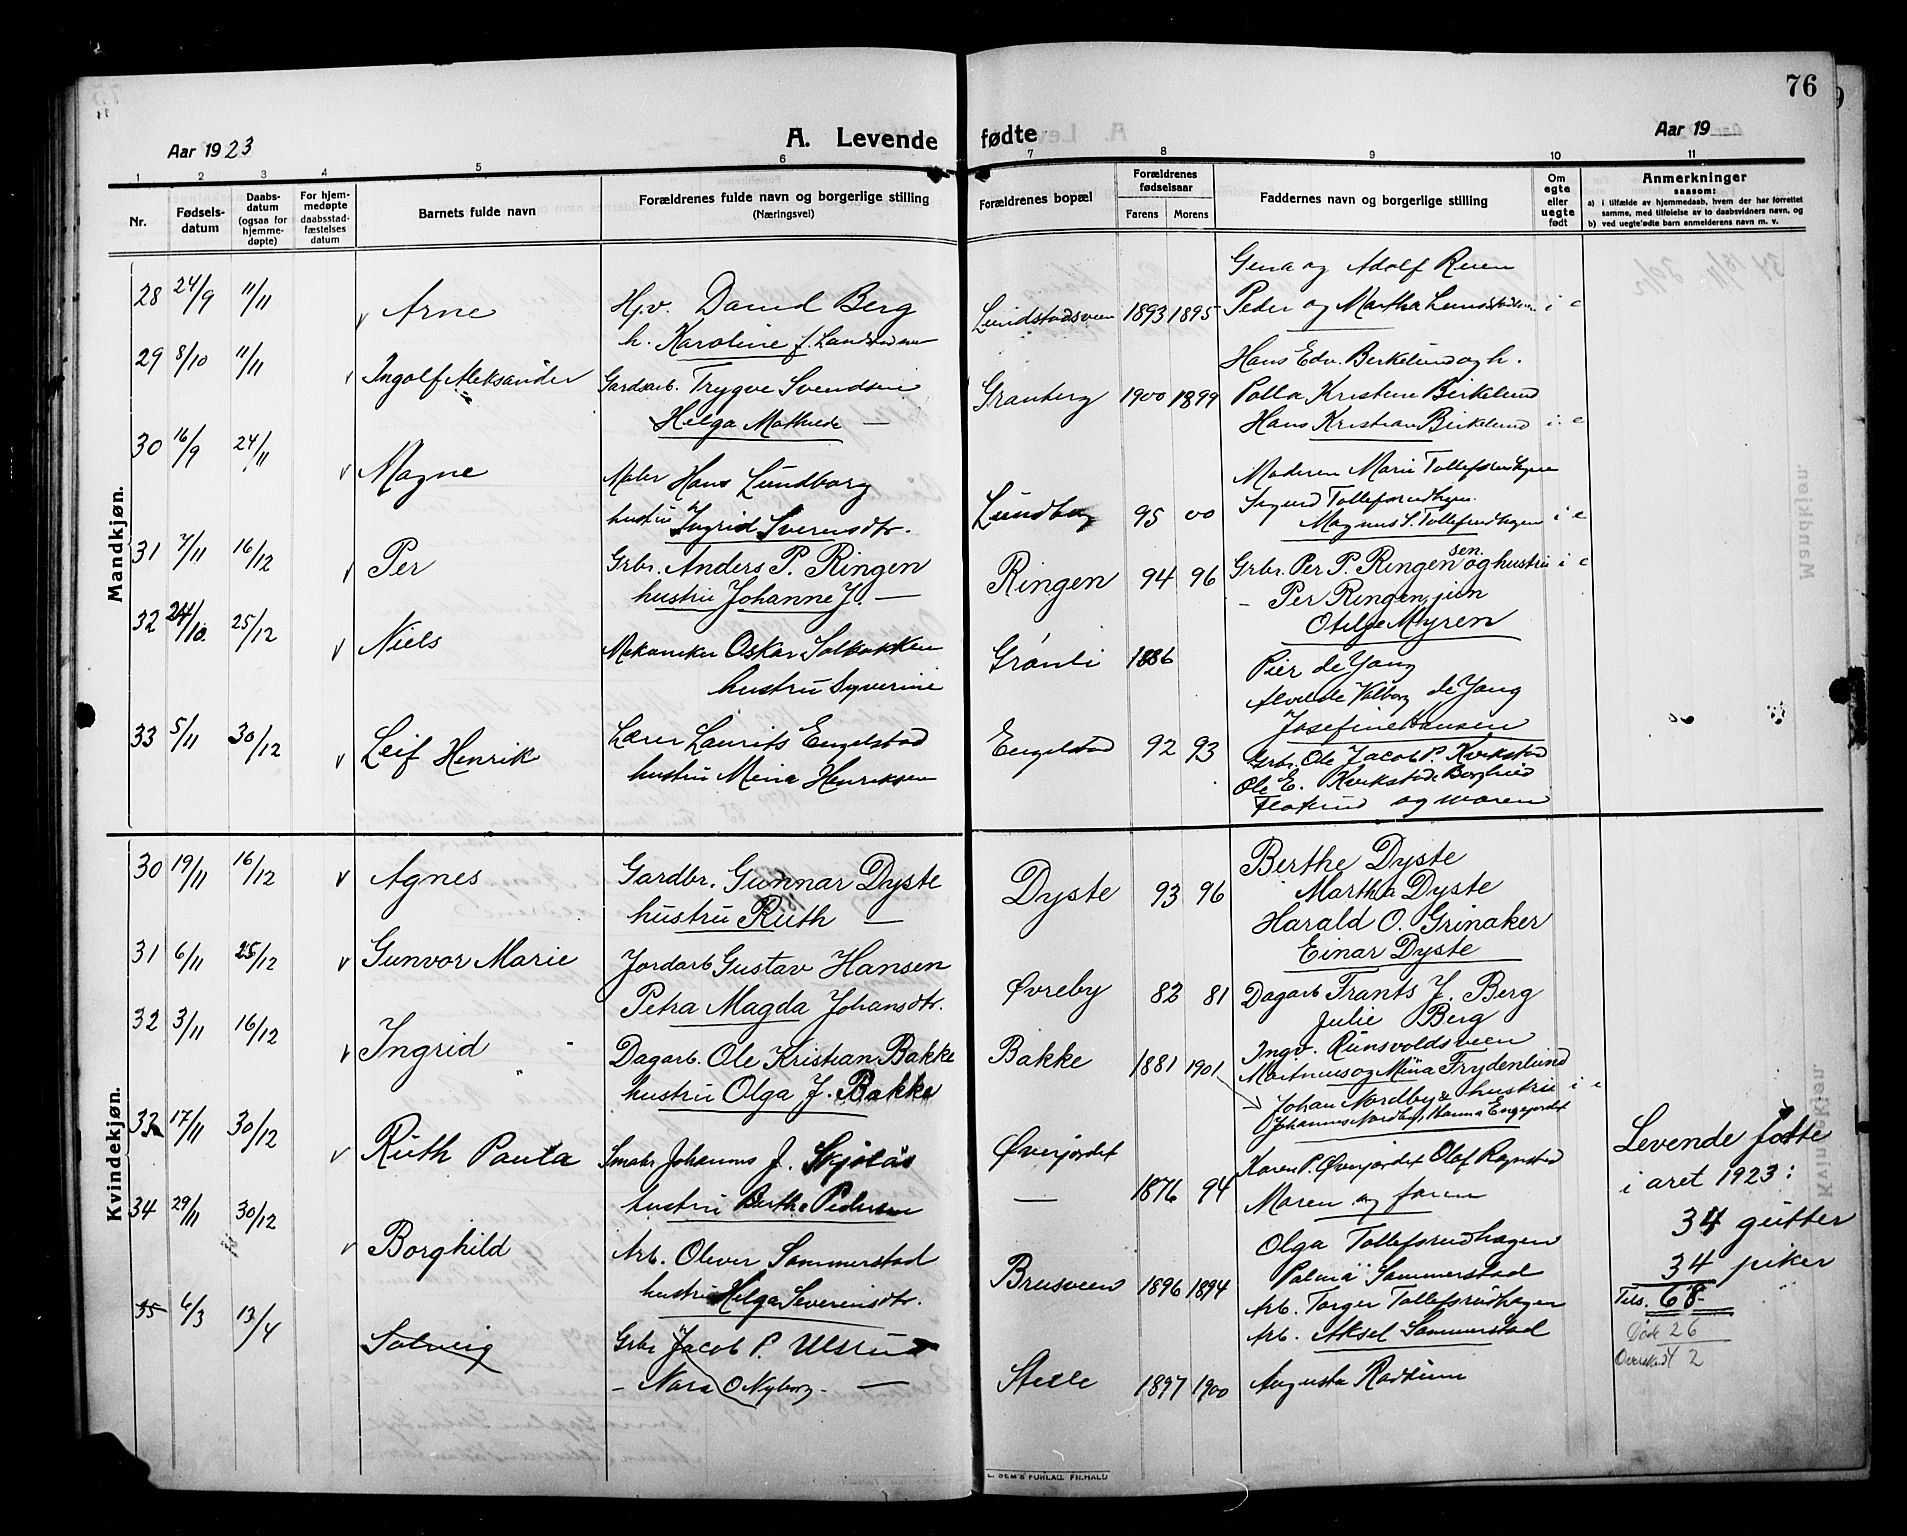 76
Aar 1923
A. Levende fødte
Aar 19
1 2 3 4 5 6 7 8 9 10 11
Nr.
Fødsels-
datum
Daabs-
datum
(ogsaa for
hjemme-
døpte)
For hjem-
medøpte
daabsstad-
fæstelses
datum
Barnets fulde navn
Forældrenes fulde navn og borgerlige stilling
(Næringsvei)
Forældrenes bopæl
Forældrenes
fødselsaar
Farens Morens
Faddernes navn og borgerlige stilling
Om
egte
eller
uegte
født
Anmerkninger
saasom:
a) i tilfælde av hjemmedaab, hvem der har forrettet
samme, med tilføielse av to daabsvidners navn, og
b) ved uegte fødte barn anmelderens navn m. v.
Mandkjøn.
28 24/9 11/11 Arne
Hjv. David Berg
h. Karoline f.
Lundstadsveen 1893 1895
Gena og Adolf Ruen
Peder og Martha i e
29 8/10 11/11 Ingolf Aleksander
Gardsarb. Trygve Svendsen
Helga Mathilde —
Granberg 1900 1899
Hans Edv. Berkelund og h.
Polla Kristine Birkelund
Hans Kristian Birkelund i e
30 16/9 24/11 Magne
Maler Hans Lundborg
hustru Ingrid Sverensdtr.
Lundborg 95 00
Moderen Marie Tollefsrudhagen
Sigurd Tollefsrudhagen
Magnus S. Tollefsrudhagen i e
31 7/11 16/12 Per
Grbr. Anders P. Ringen
hustru Johanne J. —
Ringen 94 96
Grbr. Per P. Ringen sen. og hustru i e
— Per Ringen, jun
Otilje Myren
32 24/10 25/12 Niels
Mekaniker Oskar Solbakken
hustru Syverine
Grønli 1886
Pier de Yang
Alvilde Valborg de Yang
Josefine Hansen
33 5/11 30/12 Leif Henrik
Lærer Laurits Engelstad
hustru Mina Henriksen
Engelstad 92 93
Grbr. Ole Jacob P. Kvikstad
Ole E. Kvikstad, Borghild
og moren
Kvindekjøn.
30 19/11 16/12 Agnes
Gardbr. Gunnar Dyste
hustru Ruth —
Dyste 93 96
Berthe Dyste
Martha Dyste
Harald O. Grinaker
Einar Dyste
31 6/11 25/12 Gunvor Marie
Jordarb Gustav Hansen
Petra Magda Johansdtr.
Øvreby 82 81
Dagarb Frants J. Berg
Julie Berg
32 3/11 16/12 Ingrid
Dagarb. Ole Kristian Bakke
hustru Olga J. Bakke
Bakke 1881 1901
Ingv. Runsvoldsveen
Martinus og Mina Frydenlund
Johan Nordby & hustru i e
Johannes Nordby, Hanna Engejordet
33 17/11 30/12 Ruth Paula
Smabr Johannes J. Skjølås
hustru Berthe Pedersen
Øverjordet — 1876 94
Karen P. Øverjordet Olaf Rognstad
Moren og faren
34 29/11 30/12 Borghild
Arb. Oliver Sommerstad
hustru Helga Severinsdtr.
Brusveen 1896 1894
Olga Tollefsrudhagen
Palma Sommerstad
Arb. Torger Tollefsrudhagen
Arb. Aksel Sommerstad
35 6/3 13/4 Solveig
Grbr Jacob P. Ulsrud
— Nora O Nyborg — —
Steile 1897 1900
Augusta Radlum
Levende føtte
i aret 1923:
34 gutter
34 piker
Tils. 68
Døde 26
Overskd 42